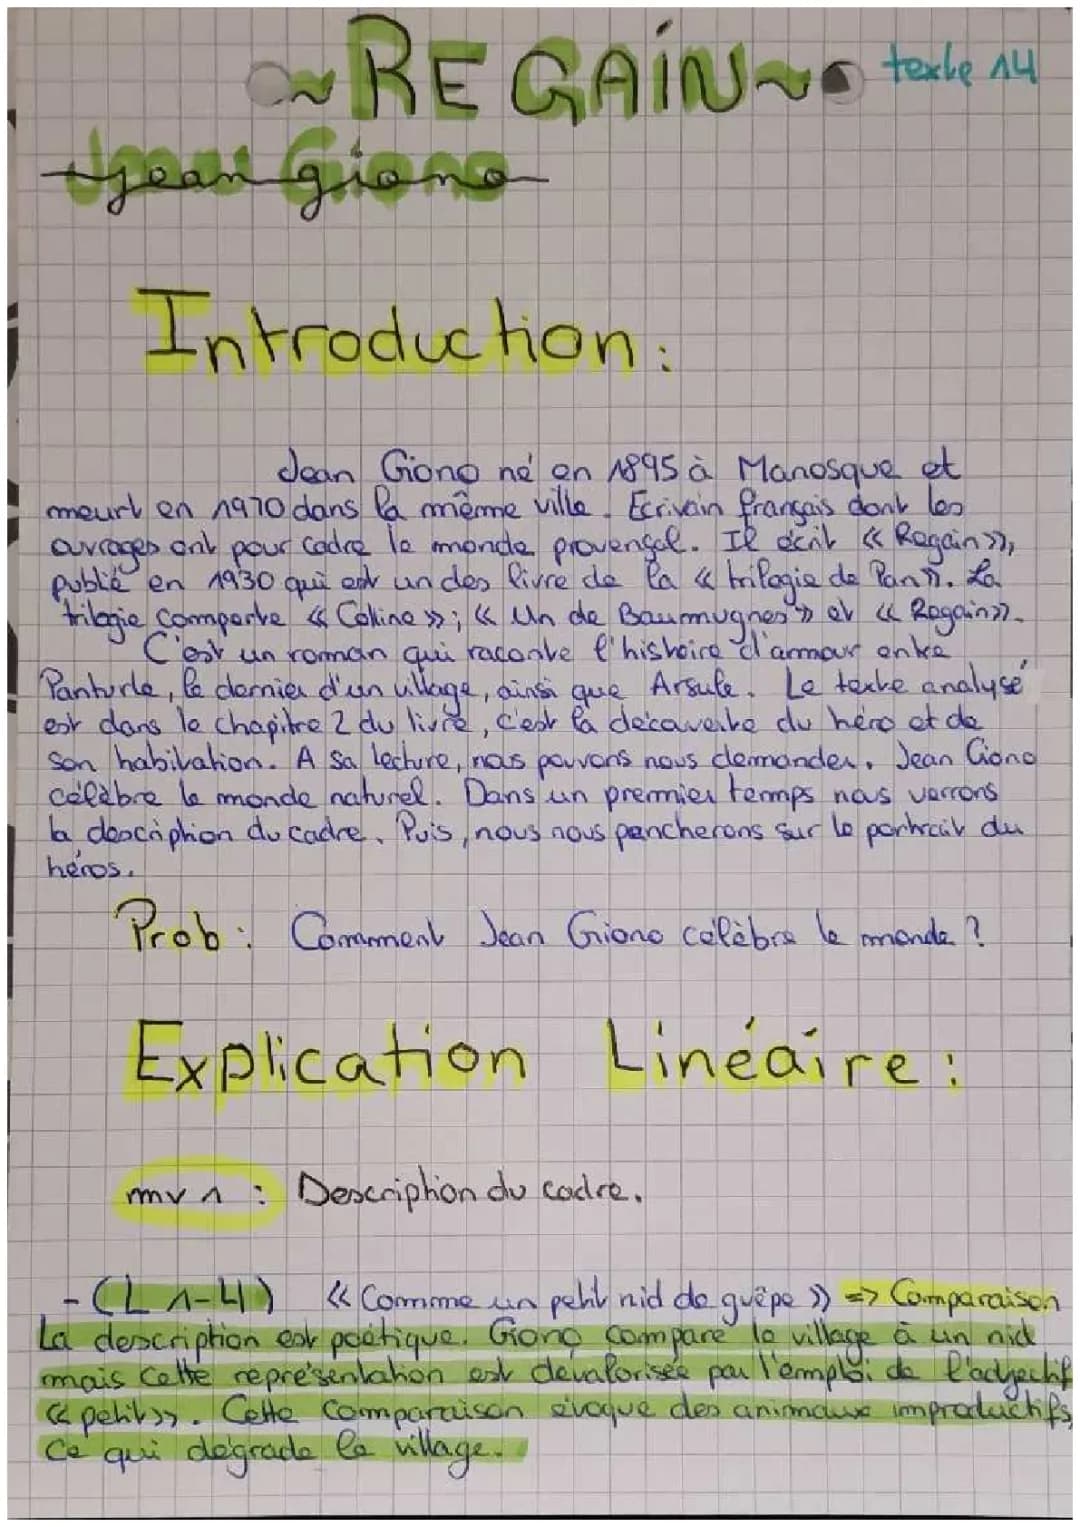 ~REGAIN~ texte 14
Jean giono
Introduction:
Jean Giono né en 1895 à Manosque et
meurt en 1970 dans la même ville. Ecrivain français dont les
ouvrages ont pour cadre le monde provençal. Il écrit « Regain »,
publié en 1930 qui est un des livre de la « trilogie de Pan ». La
trilogie comporte « Colline » ; « Un de Baumugnes » et « Regain ».
C'est un roman qui raconte l'histoire d'amour entre
Panturle, le dernier d'un village, ainsi que Arsule. Le texte analysé
est dans le chapitre 2 du livre, c'est la découverte du héro et de
son habitation. A sa lecture, nous pouvons nous demander. Jean Giono
célèbre le monde naturel. Dans un premier temps nous verrons
la description du cadre. Puis, nous nous pencherons sur le portrait du
héros.
Prob: Comment Jean Giono célèbre le monde ?
Explication Linéaire :
mv 1 : Description du cadre.
- (L 1-4) « Comme un petit nid de guêpe » => Comparaison
La description est poétique. Giono compare le village à un nid
mais cette représentation est dévalorisée par l'emploi de l'adjectif
« petit ». Cette comparaison évoque des animaux improductifs,
ce qui dégrade le village.